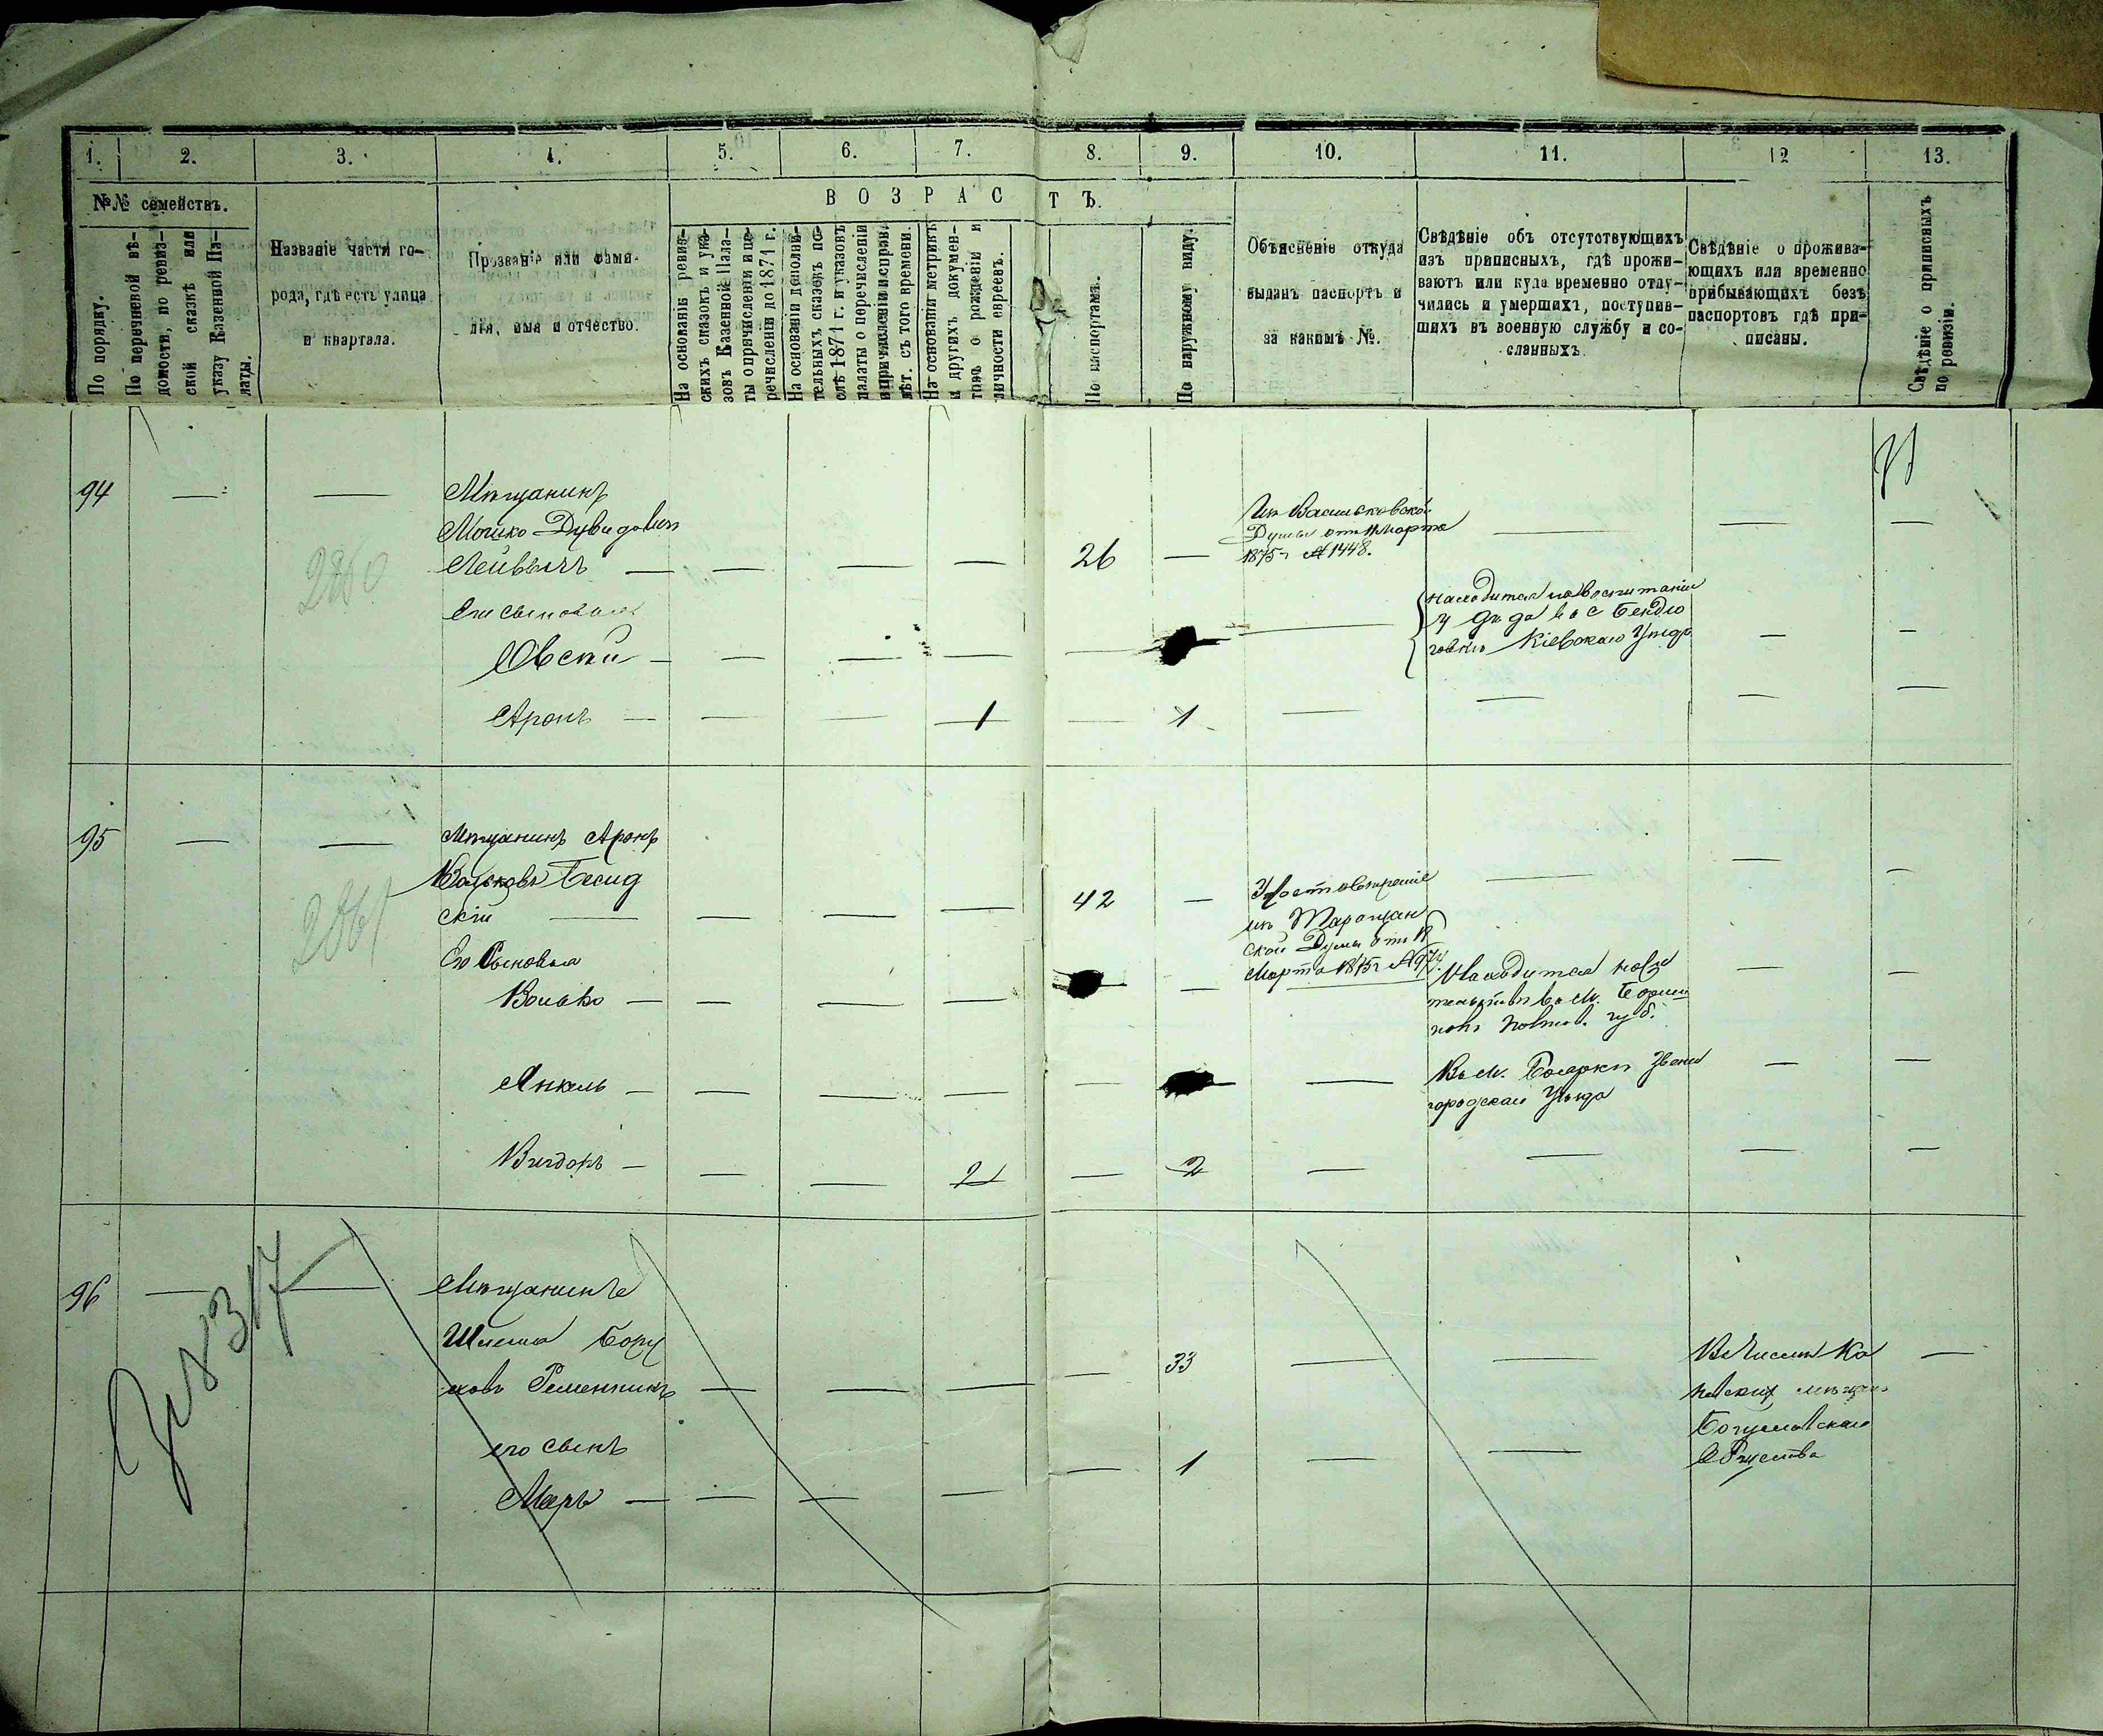 1. 2. 3. 4. 5. 6. 7. 8. 9. 10. 11. 12 13.
№№ семействъ.
По порядку.
По перечневой вѣ-
домости, по ревиз-
ской сказкѣ или
указу Казенной Па-
латы.
Названіе части го-
рода, гдѣ есть улица
и квартала.
Прозваніе или фами-
лія, имя и отчество.
ВОЗРАСТЪ.
На основаніи ревиз-
скихъ сказокъ и ука-
зовъ Казенной Пала-
ты о причисленіи и пе-
речисленіи до 1871 г.
На основаніи дополни-
тельныхъ сказокъ по-
слѣ 1871 г. и указовъ
палаты о перечисленіи
и причисленіи и справ.
лѣт. съ того времени.
На основаніи метрикъ
и другихъ докумен-
товъ о рожденіи и
личности евреевъ.
По паспортамъ.
По наружному виду.
Объясненіе откуда
выданъ паспортъ и
за какимъ №.
Свѣдѣніе объ отсутствующихъ
изъ приписныхъ, гдѣ прожи-
ваютъ или куда временно отлу-
чились и умершихъ, поступив-
шихъ въ военную службу и со-
сланныхъ.
Свѣдѣніе о прожива-
ющихъ или временно
прибывающихъ безъ
паспортовъ гдѣ при-
писаны.
Свѣдѣніе о приписныхъ
по ревизіи.
94 — —
Мѣщанинъ
Мошко Дувидовъ
2260
— — — 26 —
Изъ Васильковской
Думы отъ 11 Марта
1875 г № 1448.
— — —
Его сыновья
— — — — —
находится на воспитаніи
у дѣда въ с
Кіевскаго Уѣзда
— —
Аронъ — — — 1 — 1 — — — —
95 — —
Мѣщанинъ Аронъ
Вольковъ Бесид
скій — — — — 42 —
Удостовѣреніе
изъ Таращан
ской Думы отъ
Марта 1875 г
— — —
Его Сыновья
Волько — — — — —
Находится
въ М.
губ.
— —
Янкель — — — — — —
Въ М. Боярки Звени
городскаго Уѣзда
— —
Вигдоръ — — — 2 — 2 — — — —
96 — —
Мѣщанинъ
Шлема Бору
ховъ Ременникъ — — — — 33 — —
Въ числѣ Ка
невскихъ мѣщанъ
Богуславскаго
Общества
—
его сынъ
Меръ — — — — — 1 — —